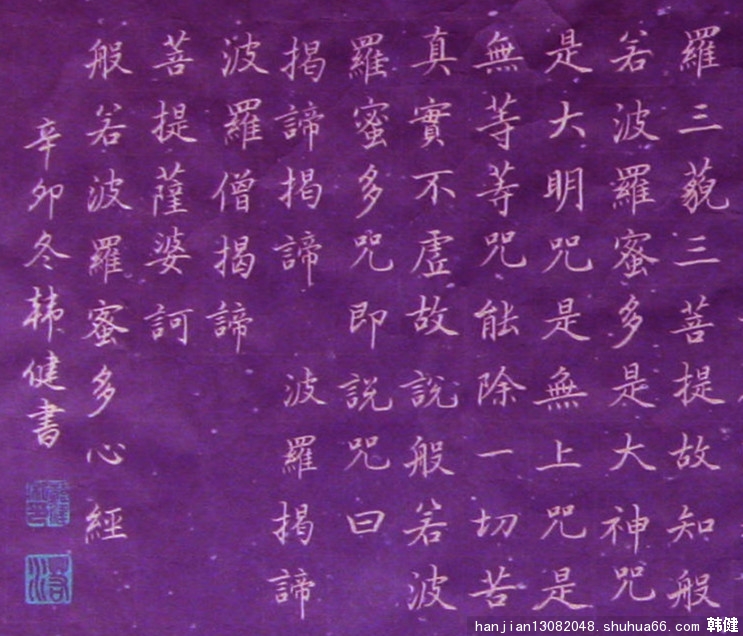 羅三藐三菩提故知般
若波羅蜜多是大神咒
是大明咒是無上咒是
無等等咒能除一切苦
真實不虛故說般若波
羅蜜多咒即說咒曰
揭諦揭諦 波羅揭諦
波羅僧揭諦
菩提薩婆訶
般若波羅蜜多心經
辛卯冬韩健書
hanjian13082048.shuhua66.com 韩健